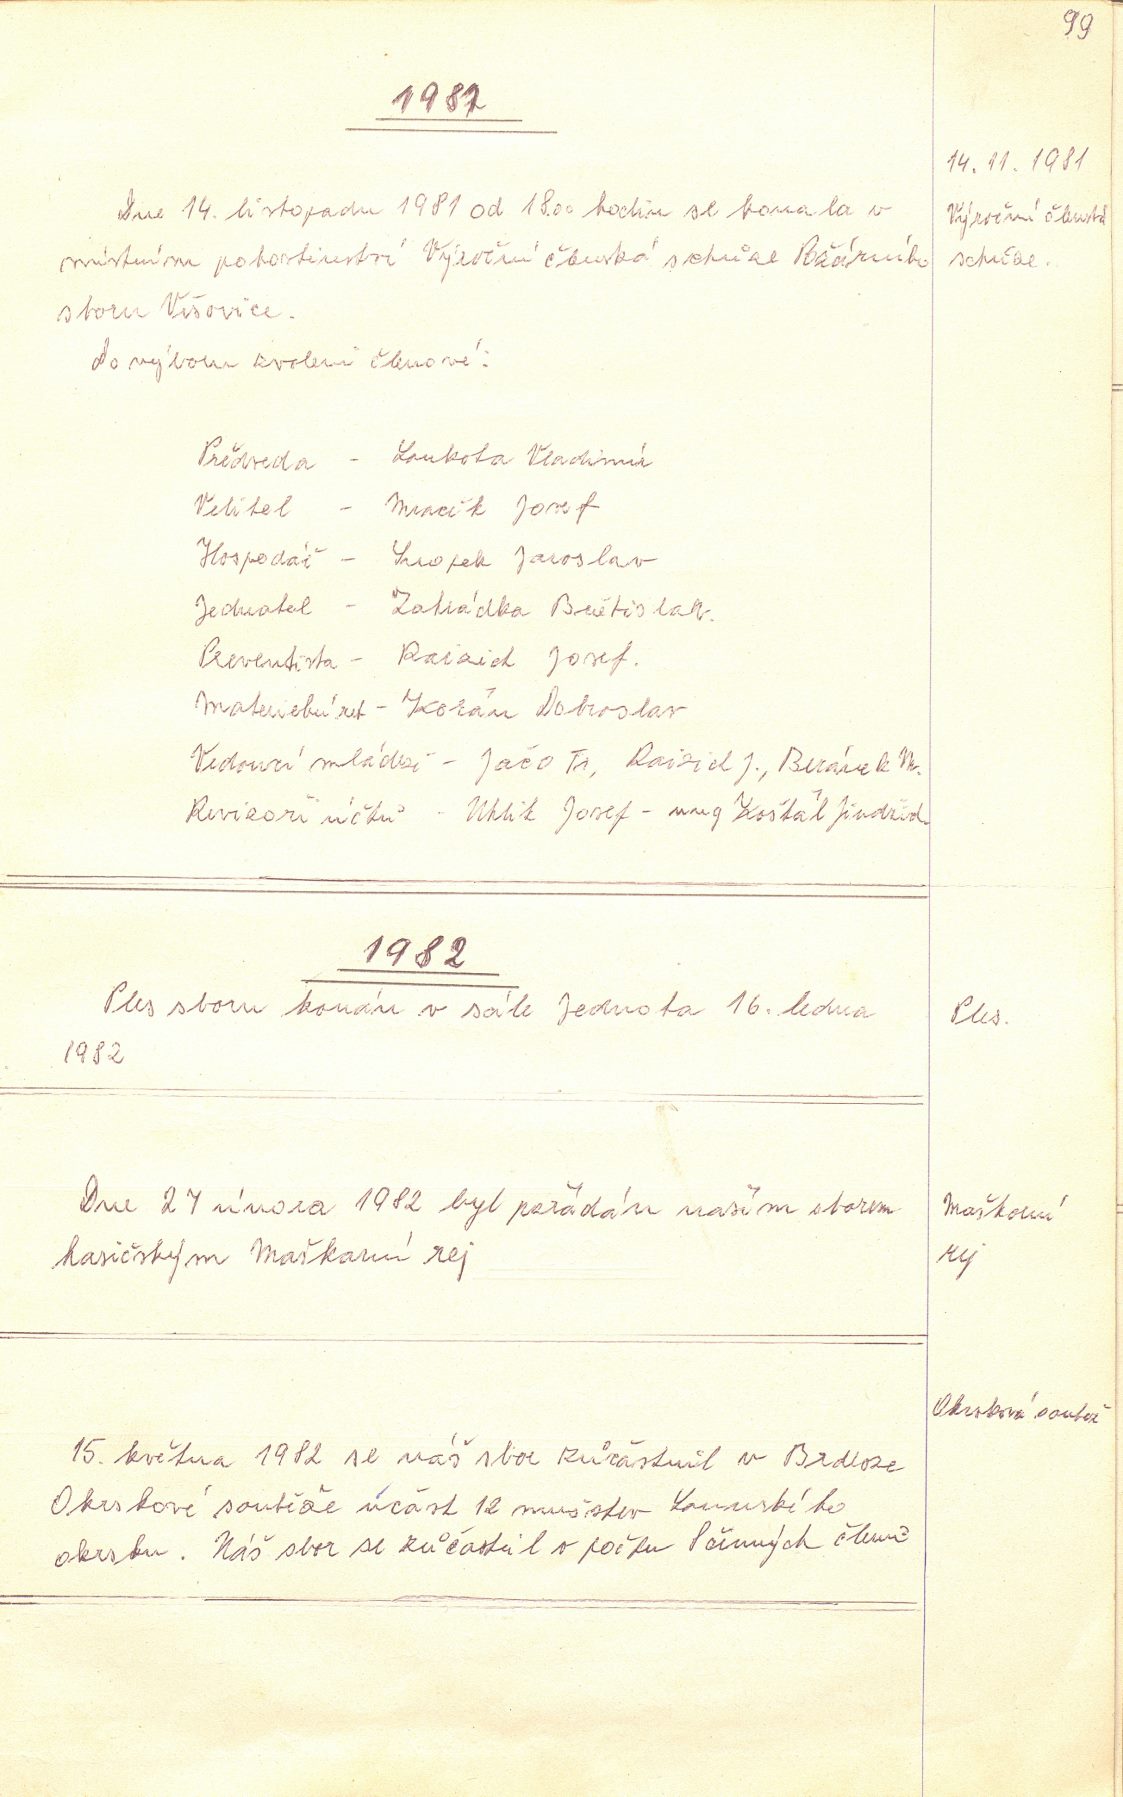 99
1981
14. 11. 1981
Dne 14. listopadu 1981 od 18.00 hodin se konala v
místním pohostinství Výroční členská schůze Požárního
sboru Višovice.
Výroční členská
schůze.
Do výboru zvoleni členové:
Předseda - Loukota Vladimír
Velitel - Mracík Josef
Hospodář - Snopek Jaroslav
Jednatel - Zahrádka Břetislav.
Preventista - Josef.
- Kořán Dobroslav
Vedoucí mládeže - Jačo Fr, J., Beránek
Revizoři účtů - Uhlík Josef - Košťál Jindřich.
1982
Ples sboru konán v sále Jednota 16. ledna
1982
Ples.
Dne 27 února 1982 byl pořádán našim sborem
hasičským Maškarní rej
Maškarní
rej
Okrsková soutěž
15. května 1982 se náš sbor zůčastnil v Brdloze
Okrskové soutěže účast 12 mužstev Lounského
okrsku. Náš sbor se zůčastnil v počtu činných členů